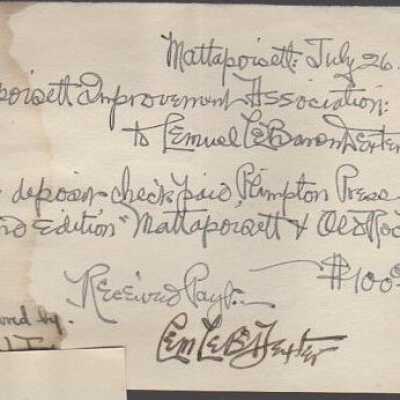 Mattapoisett: July 26.
poisett Improvement Association:
to Lemuel LeBaron Dexter
deposit check paid, Plimpton Press
2nd Edition "Mattapoisett & Old Roc
$100
Received Payt.
ved by.
Lem LeB Dexter